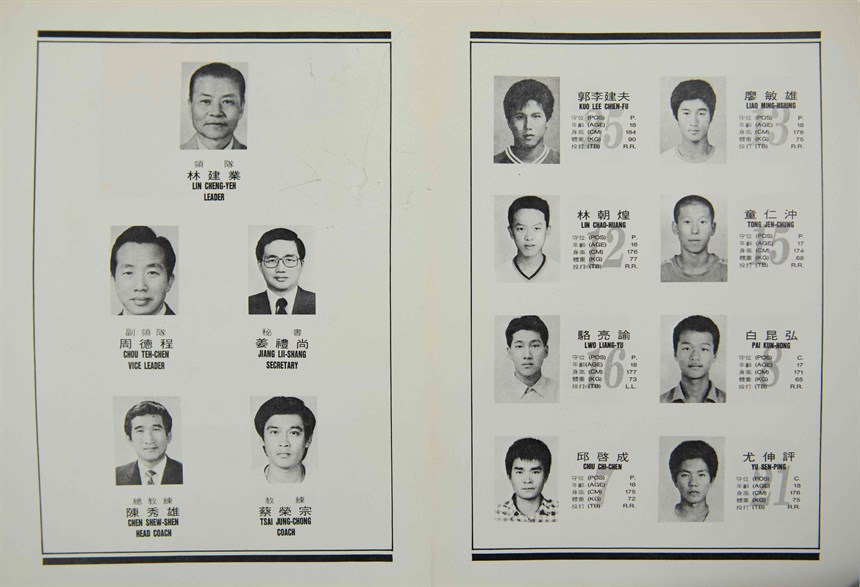 領隊
林建業
LIN CHENG-YEH
LEADER
副領隊
周德程
CHOU TEH-CHEN
VICE LEADER
秘書
姜禮尚
JIANG LII-SHANG
SECRETARY
總教練
陳秀雄
CHEN SHEW-SHEN
HEAD COACH
教練
蔡榮宗
TSAI JUNG-CHONG
COACH
郭李建夫
KUO LEE CHIEN-FU
守位 (POS) P.
年齡 (AGE) 18
身高 (CM) 184
體重 (KG) 90
投打 (TB) R.R.
5
廖敏雄
LIAO MING-HSIUNG
守位 (POS) P.
年齡 (AGE) 18
身高 (CM) 178
體重 (KG) 75
投打 (TB) R.R.
林朝煌
LIN CHAO-HUANG
守位 (POS) P.
年齡 (AGE) 18
身高 (CM) 176
體重 (KG) 77
投打 (TB) R.R.
12
童仁沖
TONG JEN-CHUNG
守位 (POS) P.
年齡 (AGE) 17
身高 (CM) 174
體重 (KG) 68
投打 (TB) R.R.
15
駱亮諭
LWO LIANG-YU
守位 (POS) P.
年齡 (AGE) 18
身高 (CM) 177
體重 (KG) 73
投打 (TB) L.L.
白昆弘
PAI KUN-HONG
守位 (POS) C.
年齡 (AGE) 17
身高 (CM) 171
體重 (KG) 65
投打 (TB) R.R.
邱啓成
CHIU CHI-CHEN
守位 (POS) P.
年齡 (AGE) 18
身高 (CM) 175
體重 (KG) 72
投打 (TB) R.R.
尤伸評
YU SEN-PING
守位 (POS) C.
年齡 (AGE) 18
身高 (CM) 176
體重 (KG) 75
投打 (TB) R.R.